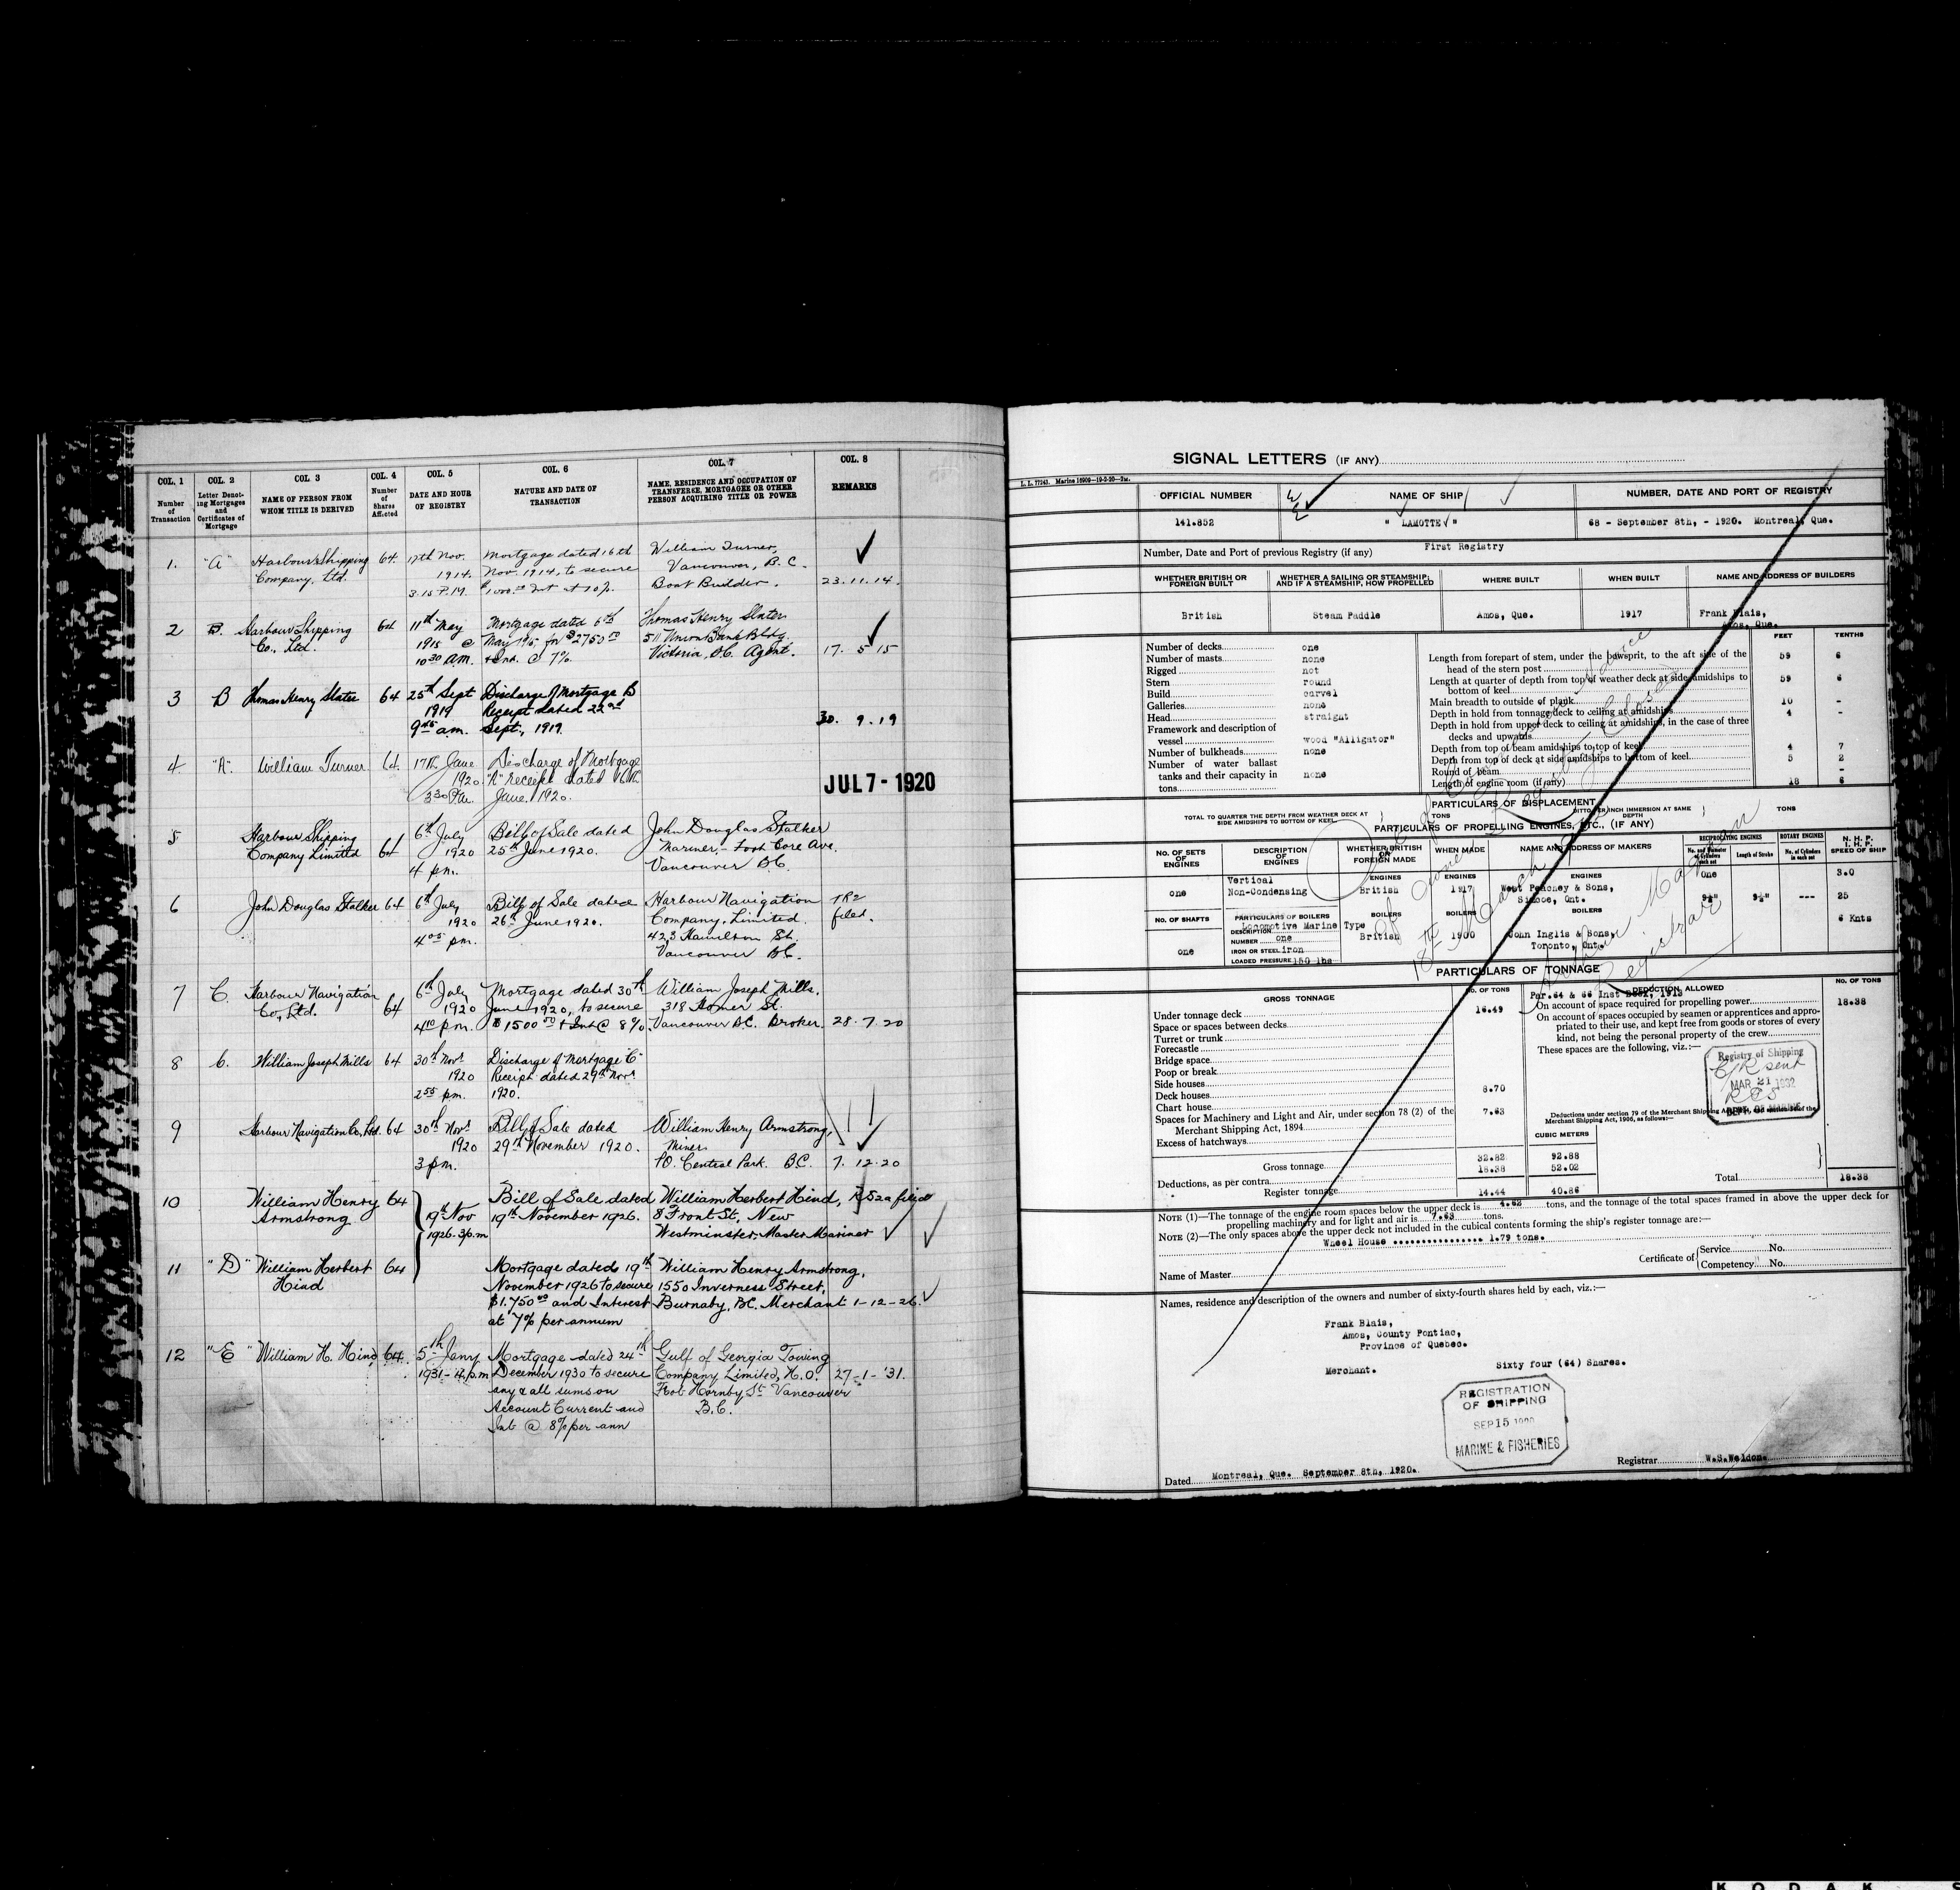 COL. 1
Number of Transaction
COL. 2
Letter Denoting Mortgages and Certificates of Mortgage
COL. 3
NAME OF PERSON FROM WHOM TITLE IS DERIVED
COL. 4
Number of Shares Affected
COL. 5
DATE AND HOUR OF REGISTRY
COL. 6
NATURE AND DATE OF TRANSACTION
COL. 7
NAME, RESIDENCE AND OCCUPATION OF TRANSFEREE, MORTGAGEE OR OTHER PERSON ACQUIRING TITLE OR POWER
COL. 8
REMARKS
1. "A" Harbour Shipping 64. 17th Nov. Mortgage dated 16th William Turner,
Company, Ltd. 1914. Nov. 1914, to secure Vancouver, B.C.
3.15 P.M. $1000.00 Int at 10%. Boat Builder. 23.11.14.
2 B. Harbour Shipping 64 11th May Mortgage dated 6th Thomas Henry Slater
Co., Ltd. 1915 @ May 1915 for $2750.00 511 Union Bank Bldg.
10 30 am. + Int. @ 7%. Victoria, B.C. Agent. 17. 5 15
3 B Thomas Henry Slater 64 25th Sept Discharge of Mortgage B
1919 Receipt dated 22nd
9 45 am. Sept., 1919. 30. 9. 19
4 "A". William Turner 64. 17th June Discharge of Mortgage
1920. "A" receipt dated 16th
3 30 P.M. June, 1920.
JUL 7 - 1920
5 Harbour Shipping 6th July Bill of Sale dated John Douglas Stalker
Company Limited 64 1920 25th June 1920. Mariner, - Foot Gore Ave.
4 pm. Vancouver B.C.
6 John Douglas Stalker 64 6th July Bill of Sale dated Harbour Navigation TR2
1920 26th June 1920. Company, Limited. filed.
4 05 pm. 423 Hamilton St.
Vancouver B.C.
7 C. Harbour Navigation 6th July Mortgage dated 30th William Joseph Mills.
Co., Ltd. 64 1920 June 1920, to secure 318 Homer St.
4 10 p.m. $1500 00 + Int @ 8%. Vancouver B.C. Broker. 28.7.20
8 C. William Joseph Mills 64 30th Novr. Discharge of Mortgage "C"
1920 Receipt dated 29th Novr.
2 55 pm. 1920.
9 Harbour Navigation Co., Ltd. 64 30th Novr. Bill of Sale dated William Henry Armstrong,
1920 29th November 1920. Miner
3 pm. P.O. Central Park. B.C. 7. 12.20
10 William Henry 64 Bill of Sale dated William Herbert Hind, R52a filed
Armstrong. 19th Nov 19th November 1926. 8 Front St, New
1926. 3 p.m Westminster. Master Mariner
11 "D" William Herbert 64 Mortgage dated 19th William Henry Armstrong,
Hind November 1926 to secure 1550 Inverness Street,
$1,750 00 and Interest Burnaby, B.C. Merchant 1-12-26.
at 7% per annum
12 "E" William H. Hind, 64. 5th Jany Mortgage dated 24th Gulf of Georgia Towing
1931 - 4 p.m December 1930 to secure Company Limited, H.O. 27-1-'31.
any & all sums on Foot Hornby St Vancouver
Account Current and B.C.
Int @ 8% per ann
SIGNAL LETTERS (IF ANY)
L. L. 77243. Marine 16909-19-2-20-2M.
OFFICIAL NUMBER NAME OF SHIP NUMBER, DATE AND PORT OF REGISTRY
141.852 " LAMOTTE " 68 - September 8th, - 1920. Montreal, Que.
Number, Date and Port of previous Registry (if any) First Registry
WHETHER BRITISH OR FOREIGN BUILT
WHETHER A SAILING OR STEAMSHIP, AND IF A STEAMSHIP, HOW PROPELLED
WHERE BUILT
WHEN BUILT
NAME AND ADDRESS OF BUILDERS
British Steam Paddle Amos, Que. 1917 Frank Blais,
Amos, Que.
FEET TENTHS
Number of decks one
Number of masts none
Rigged not
Stern round
Build carvel
Galleries none
Head straight
Framework and description of
vessel wood "Alligator"
Number of bulkheads none
Number of water ballast
tanks and their capacity in
tons none
Length from forepart of stem, under the bowsprit, to the aft side of the
head of the stern post 59 6
Length at quarter of depth from top of weather deck at side amidships to
bottom of keel 59 6
Main breadth to outside of plank 10 -
Depth in hold from tonnage deck to ceiling at amidships 4 -
Depth in hold from upper deck to ceiling at amidships, in the case of three
decks and upwards
Depth from top of beam amidships to top of keel 4 7
Depth from top of deck at side amidships to bottom of keel 5 2
Round of beam -
Length of engine room (if any) 18 6
PARTICULARS OF DISPLACEMENT
TOTAL TO QUARTER THE DEPTH FROM WEATHER DECK AT SIDE AMIDSHIPS TO BOTTOM OF KEEL TONS
DITTO PER INCH IMMERSION AT SAME DEPTH TONS
PARTICULARS OF PROPELLING ENGINES, ETC., (IF ANY)
NO. OF SETS OF ENGINES
DESCRIPTION OF ENGINES
WHETHER BRITISH OR FOREIGN MADE
WHEN MADE
NAME AND ADDRESS OF MAKERS
RECIPROCATING ENGINES
No. and Diameter of Cylinders each set
Length of Stroke
ROTARY ENGINES
No. of Cylinders in each set
N. H. P.
I. H. P.
SPEED OF SHIP
ENGINES ENGINES ENGINES
one Vertical
Non-Condensing British 1917 West Peachey & Sons,
Simcoe, Ont.
One 3.0
9¼" 9¼" --- 25
6 Knts
NO. OF SHAFTS PARTICULARS OF BOILERS BOILERS BOILERS BOILERS
one
DESCRIPTION Locomotive Marine Type
NUMBER one
IRON OR STEEL iron
LOADED PRESSURE 150 lbs
British 1900 John Inglis & Sons,
Toronto, Ont.
PARTICULARS OF TONNAGE
GROSS TONNAGE NO. OF TONS DEDUCTION ALLOWED NO. OF TONS
Under tonnage deck 16.49
Space or spaces between decks
Turret or trunk
Forecastle
Bridge space
Poop or break
Side houses
Deck houses 8.70
Chart house
Spaces for Machinery and Light and Air, under section 78 (2) of the
Merchant Shipping Act, 1894 7.63
Excess of hatchways
Par.64 & 66 Inst Book, 1913
On account of space required for propelling power 18.38
On account of spaces occupied by seamen or apprentices and appro-
priated to their use, and kept free from goods or stores of every
kind, not being the personal property of the crew
These spaces are the following, viz.:—
Registry of Shipping
C/R sent
MAR 21 1932
DEPT. OF MARINE
CUBIC METERS
Gross tonnage 32.82 92.88
Deductions, as per contra 18.38 52.02
Register tonnage 14.44 40.86
Total 18.38
NOTE (1)—The tonnage of the engine room spaces below the upper deck is 4.62 tons, and the tonnage of the total spaces framed in above the upper deck for
propelling machinery and for light and air is 7.63 tons.
NOTE (2)—The only spaces above the upper deck not included in the cubical contents forming the ship's register tonnage are:—
Wheel House 1.79 tons.
Name of Master
Certificate of Service No.
Competency No.
Names, residence and description of the owners and number of sixty-fourth shares held by each, viz.:—
Frank Blais,
Amos, County Pontiac,
Province of Quebec.
Merchant. Sixty four (64) Shares.
REGISTRATION
OF SHIPPING
SEP 15
MARINE & FISHERIES
Dated Montreal, Que. September 8th, 1920.
Registrar W.S.Weldon.
18th March
Registrar
KODAK S